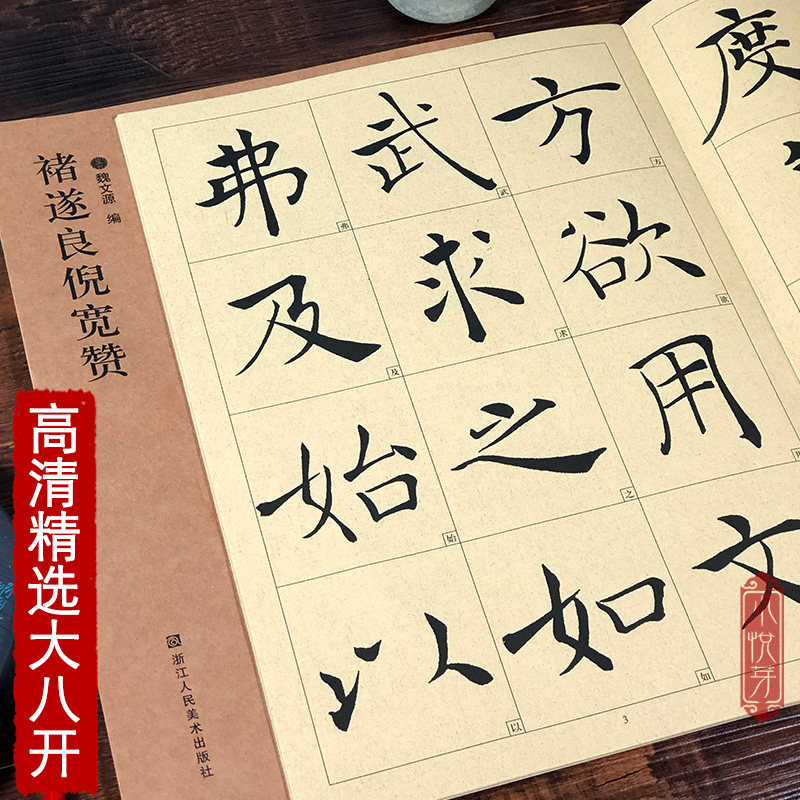 褚遂良倪宽赞
魏文源 编
浙江人民美术出版社
高清精选大八开
度
方欲用文
方
欲
武求之如
武
求
之
如
弗及始以
弗
及
始
以
3
小悦芽